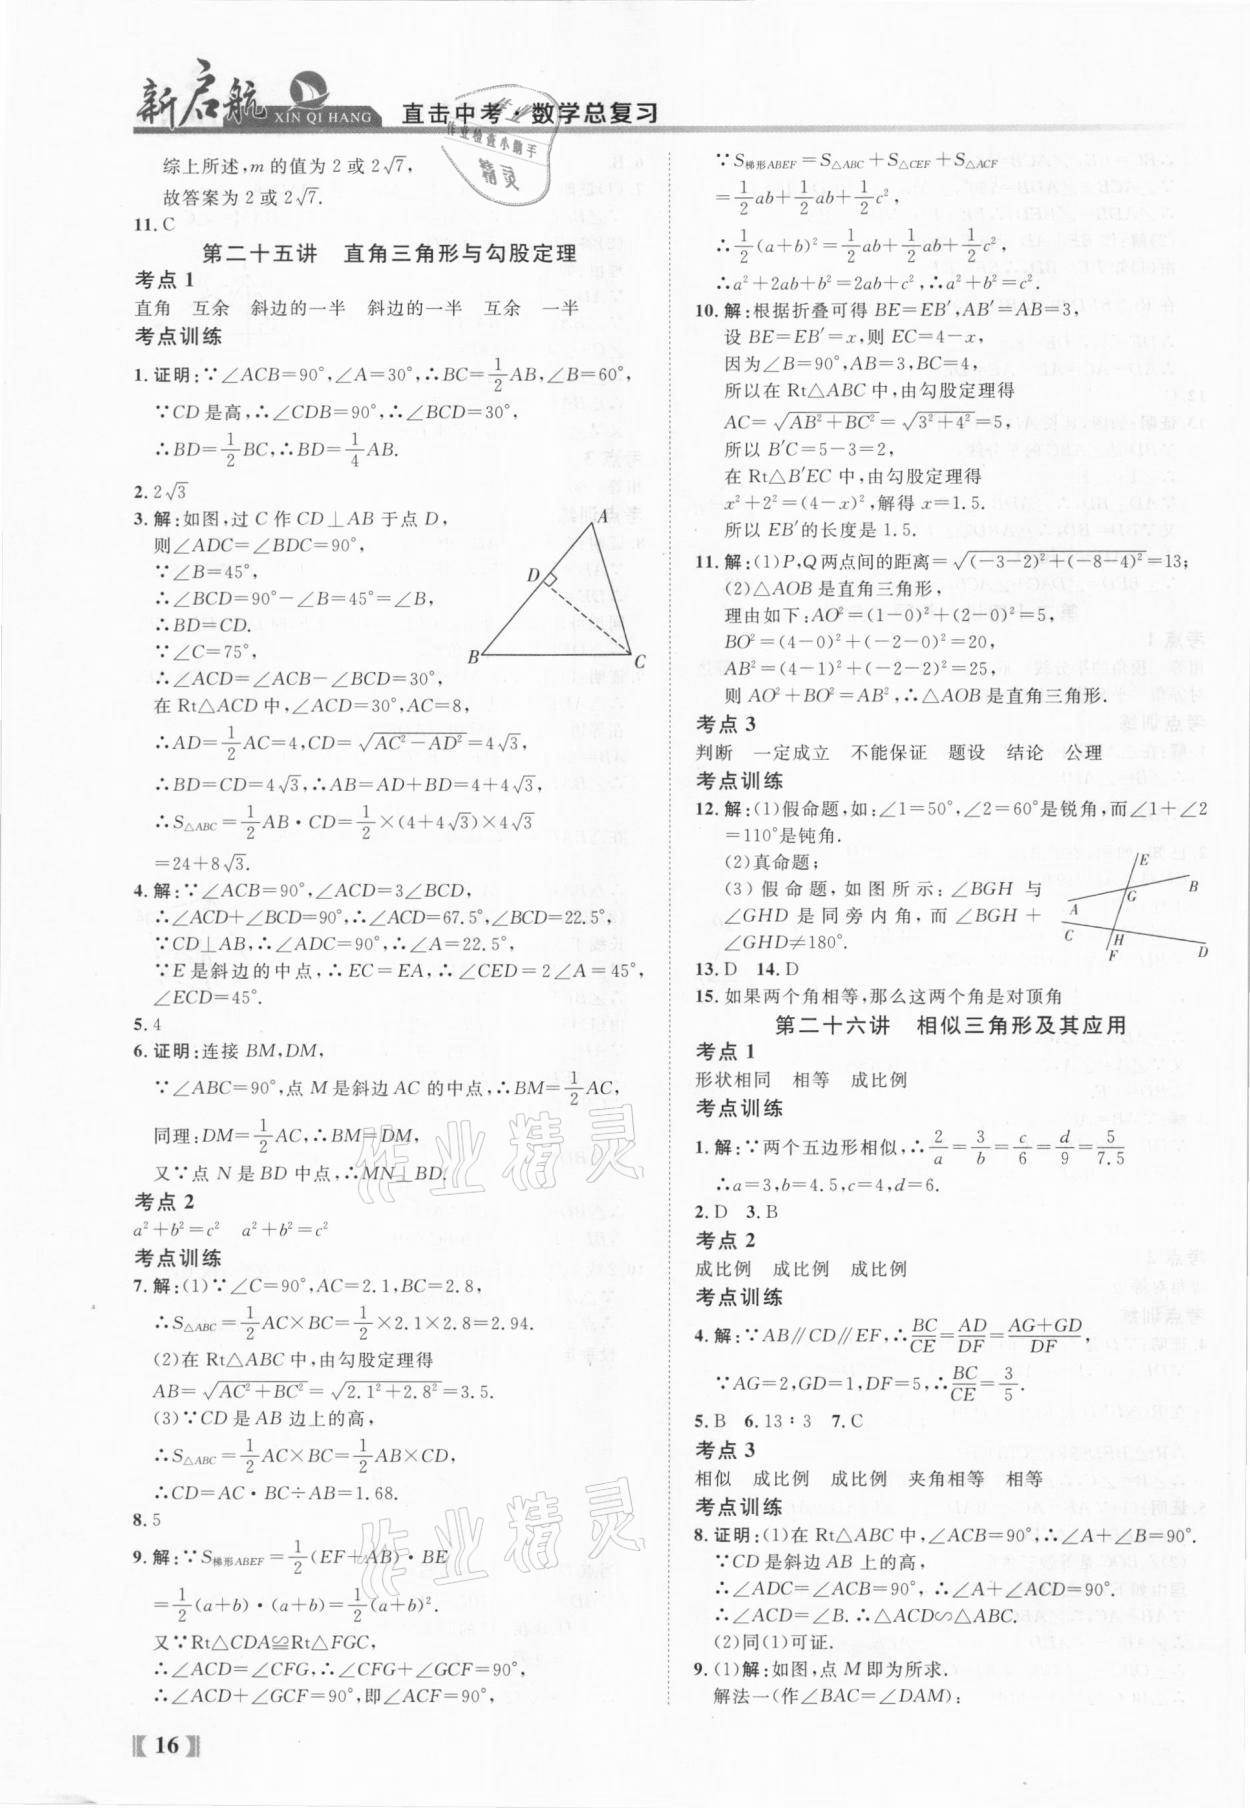 新启航
XIN QI HANG
直击中考·数学总复习
综上所述,m的值为2或2√7,
故答案为2或2√7.
11.C
第二十五讲 直角三角形与勾股定理
考点1
直角 互余 斜边的一半 斜边的一半 互余 一半
考点训练
1.证明:∵∠ACB=90°,∠A=30°,∴BC=1/2AB,∠B=60°,
∵CD是高,∴∠CDB=90°,∴∠BCD=30°,
∴BD=1/2BC,∴BD=1/4AB.
2.2√3
3.解:如图,过C作CD⊥AB于点D,
则∠ADC=∠BDC=90°,
∵∠B=45°,
∴∠BCD=90°-∠B=45°=∠B,
∴BD=CD.
∵∠C=75°,
∴∠ACD=∠ACB-∠BCD=30°,
在Rt△ACD中,∠ACD=30°,AC=8,
∴AD=1/2AC=4,CD=√(AC²-AD²)=4√3,
∴BD=CD=4√3,∴AB=AD+BD=4+4√3,
∴S△ABC=1/2AB·CD=1/2×(4+4√3)×4√3
=24+8√3.
A
D
B
C
4.解:∵∠ACB=90°,∠ACD=3∠BCD,
∴∠ACD+∠BCD=90°,∴∠ACD=67.5°,∠BCD=22.5°,
∵CD⊥AB,∴∠ADC=90°,∴∠A=22.5°,
∵E是斜边的中点,∴EC=EA,∴∠CED=2∠A=45°,
∠ECD=45°.
5.4
6.证明:连接BM,DM,
∵∠ABC=90°,点M是斜边AC的中点,∴BM=1/2AC,
同理:DM=1/2AC,∴BM=DM,
又∵点N是BD中点,∴MN⊥BD.
考点2
a²+b²=c² a²+b²=c²
考点训练
7.解:(1)∵∠C=90°,AC=2.1,BC=2.8,
∴S△ABC=1/2AC×BC=1/2×2.1×2.8=2.94.
(2)在Rt△ABC中,由勾股定理得
AB=√(AC²+BC²)=√(2.1²+2.8²)=3.5.
(3)∵CD是AB边上的高,
∴S△ABC=1/2AC×BC=1/2AB×CD,
∴CD=AC·BC÷AB=1.68.
8.5
9.解:∵S梯形ABEF=1/2(EF+AB)·BE
=1/2(a+b)·(a+b)=1/2(a+b)².
又∵Rt△CDA≌Rt△FGC,
∴∠ACD=∠CFG,∴∠CFG+∠GCF=90°,
∴∠ACD+∠GCF=90°,即∠ACF=90°,
∵S梯形ABEF=S△ABC+S△CEF+S△ACF
=1/2ab+1/2ab+1/2c²,
∴1/2(a+b)²=1/2ab+1/2ab+1/2c²,
∴a²+2ab+b²=2ab+c²,∴a²+b²=c².
10.解:根据折叠可得BE=EB′,AB′=AB=3,
设BE=EB′=x,则EC=4-x,
因为∠B=90°,AB=3,BC=4,
所以在Rt△ABC中,由勾股定理得
AC=√(AB²+BC²)=√(3²+4²)=5,
所以B′C=5-3=2,
在Rt△B′EC中,由勾股定理得
x²+2²=(4-x)²,解得x=1.5.
所以EB′的长度是1.5.
11.解:(1)P,Q两点间的距离=√((-3-2)²+(-8-4)²)=13;
(2)△AOB是直角三角形,
理由如下:AO²=(1-0)²+(2-0)²=5,
BO²=(4-0)²+(-2-0)²=20,
AB²=(4-1)²+(-2-2)²=25,
则AO²+BO²=AB²,∴△AOB是直角三角形.
考点3
判断 一定成立 不能保证 题设 结论 公理
考点训练
12.解:(1)假命题,如:∠1=50°,∠2=60°是锐角,而∠1+∠2
=110°是钝角.
(2)真命题;
(3)假命题,如图所示:∠BGH与
∠GHD是同旁内角,而∠BGH+
∠GHD≠180°.
E
B
G
A
C
H
F
D
13.D 14.D
15.如果两个角相等,那么这两个角是对顶角
第二十六讲 相似三角形及其应用
考点1
形状相同 相等 成比例
考点训练
1.解:∵两个五边形相似,∴2/a=3/b=c/6=d/9=5/7.5
∴a=3,b=4.5,c=4,d=6.
2.D 3.B
考点2
成比例 成比例 成比例
考点训练
4.解:∵AB∥CD∥EF,∴BC/CE=AD/DF=(AG+GD)/DF,
∵AG=2,GD=1,DF=5,∴BC/CE=3/5.
5.B 6.13∶3 7.C
考点3
相似 成比例 成比例 夹角相等 相等
考点训练
8.证明:(1)在Rt△ABC中,∠ACB=90°,∴∠A+∠B=90°.
∵CD是斜边AB上的高,
∴∠ADC=∠CDB=90°,∴∠A+∠ACD=90°.
∴∠ACD=∠B.∴△ACD∽△ABC.
(2)同(1)可证.
9.(1)解:如图,点M即为所求.
解法一(作∠BAC=∠DAM):
16
作业
作业检查小助手
精灵
作业精灵
作业精灵